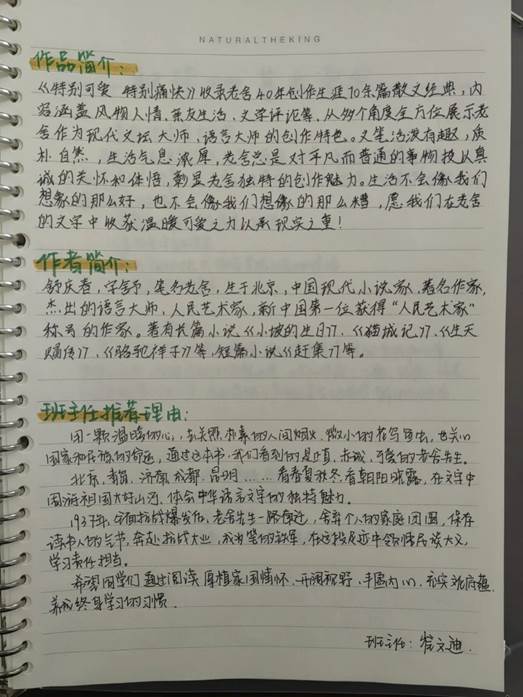 NATURALTHEKING
作品简介:
《特别可爱 特别痛快》收录老舍40年创作生涯70余篇散文经典,内
容涵盖风物人情、亲友生活、文学评论等,从多个角度全方位展示老
舍作为现代文坛大师、语言大师的创作特色。文笔活泼有趣,质
朴自然,生活气息浓厚,老舍总是对平凡而普通的事物投以真
诚的关怀和体悟,彰显老舍独特的创作魅力。生活不会像我们
想象的那么好,也不会像我们想像的那么糟,愿我们在老舍
的文字中收获温暖可爱之力以承现实之重!
作者简介:
舒庆春,字舍予,笔名老舍,生于北京,中国现代小说家、著名作家,
杰出的语言大师,人民艺术家,新中国第一位获得“人民艺术家”
称号的作家。著有长篇小说《小坡的生日》、《猫城记》、《牛天
赐传》、《骆驼祥子》等,短篇小说《赶集》等。
班主任推荐理由:
用一颗温暖的心,去关照朴素的人间烟火,微小的花鸟鱼虫,也关心
国家和民族的命运,通过这本书,我们看到的是正直、赤诚、可爱的老舍先生。
北京、青岛、济南、成都、昆明……看春夏秋冬看朝阳晚露,在文字中
围游祖国大好山河、体会中华语言文字的独特魅力。
1937年,全面抗战爆发后,老舍先生一路南迁,舍弃个人的家庭团圆,保存
读书人的气节,奔赴抗战大业,成为笔的铁军,在这段足迹中领悟民族大义,
学习责任担当。
希望同学们通过阅读厚植家国情怀、开阔视野、丰富内心、充实底蕴,
养成终身学习的习惯。
班主任:  文迪